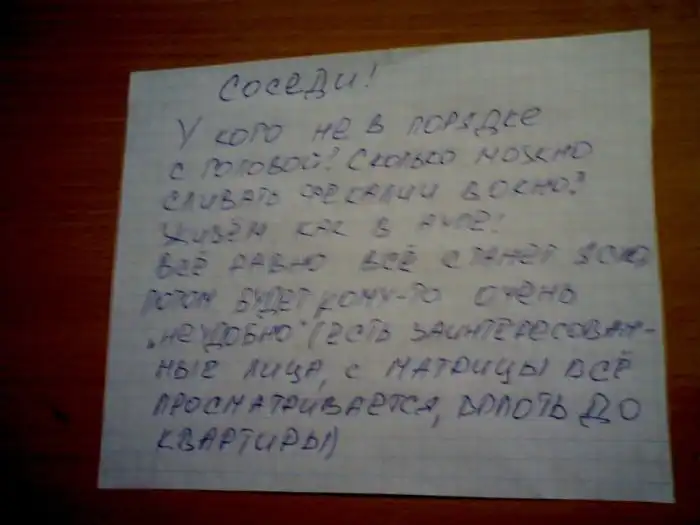 СОСЕДИ!
У КОГО НЕ В ПОРЯДКЕ
С ГОЛОВОЙ? СКОЛЬКО МОЖНО
СЛИВАТЬ ФЕКАЛИИ В ОКНО?
ЖИВЁМ КАК В АУЛЕ!
ВСЁ РАВНО ВСЁ СТАНЕТ ЯСНО,
ПОТОМ БУДЕТ КОМУ-ТО ОЧЕНЬ
„НЕУДОБНО" (ЕСТЬ ЗАИНТЕРЕСОВАН-
НЫЕ ЛИЦА, С МАТРИЦЫ ВСЁ
ПРОСМАТРИВАЕТСЯ, ВПЛОТЬ ДО
КВАРТИРЫ)